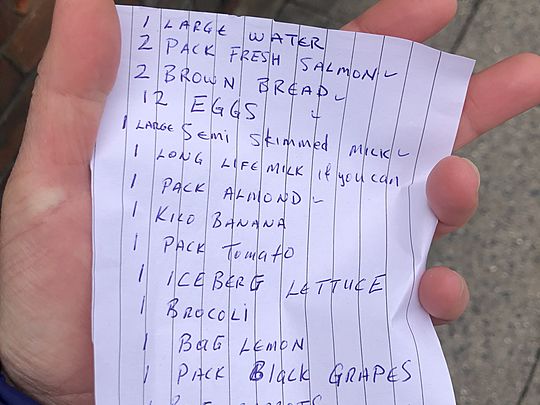 1 LARGE WATER
2 PACK FRESH SALMON ✓
2 BROWN BREAD ✓
12 EGGS ✓
1 LARGE SEMI SKIMMED MILK ✓
1 LONG LIFE MILK if you can
1 PACK ALMOND ✓
1 KILO BANANA
1 PACK TOMATO
1 ICEBERG LETTUCE
1 BROCOLI
1 BAG LEMON
1 PACK BLACK GRAPES
1